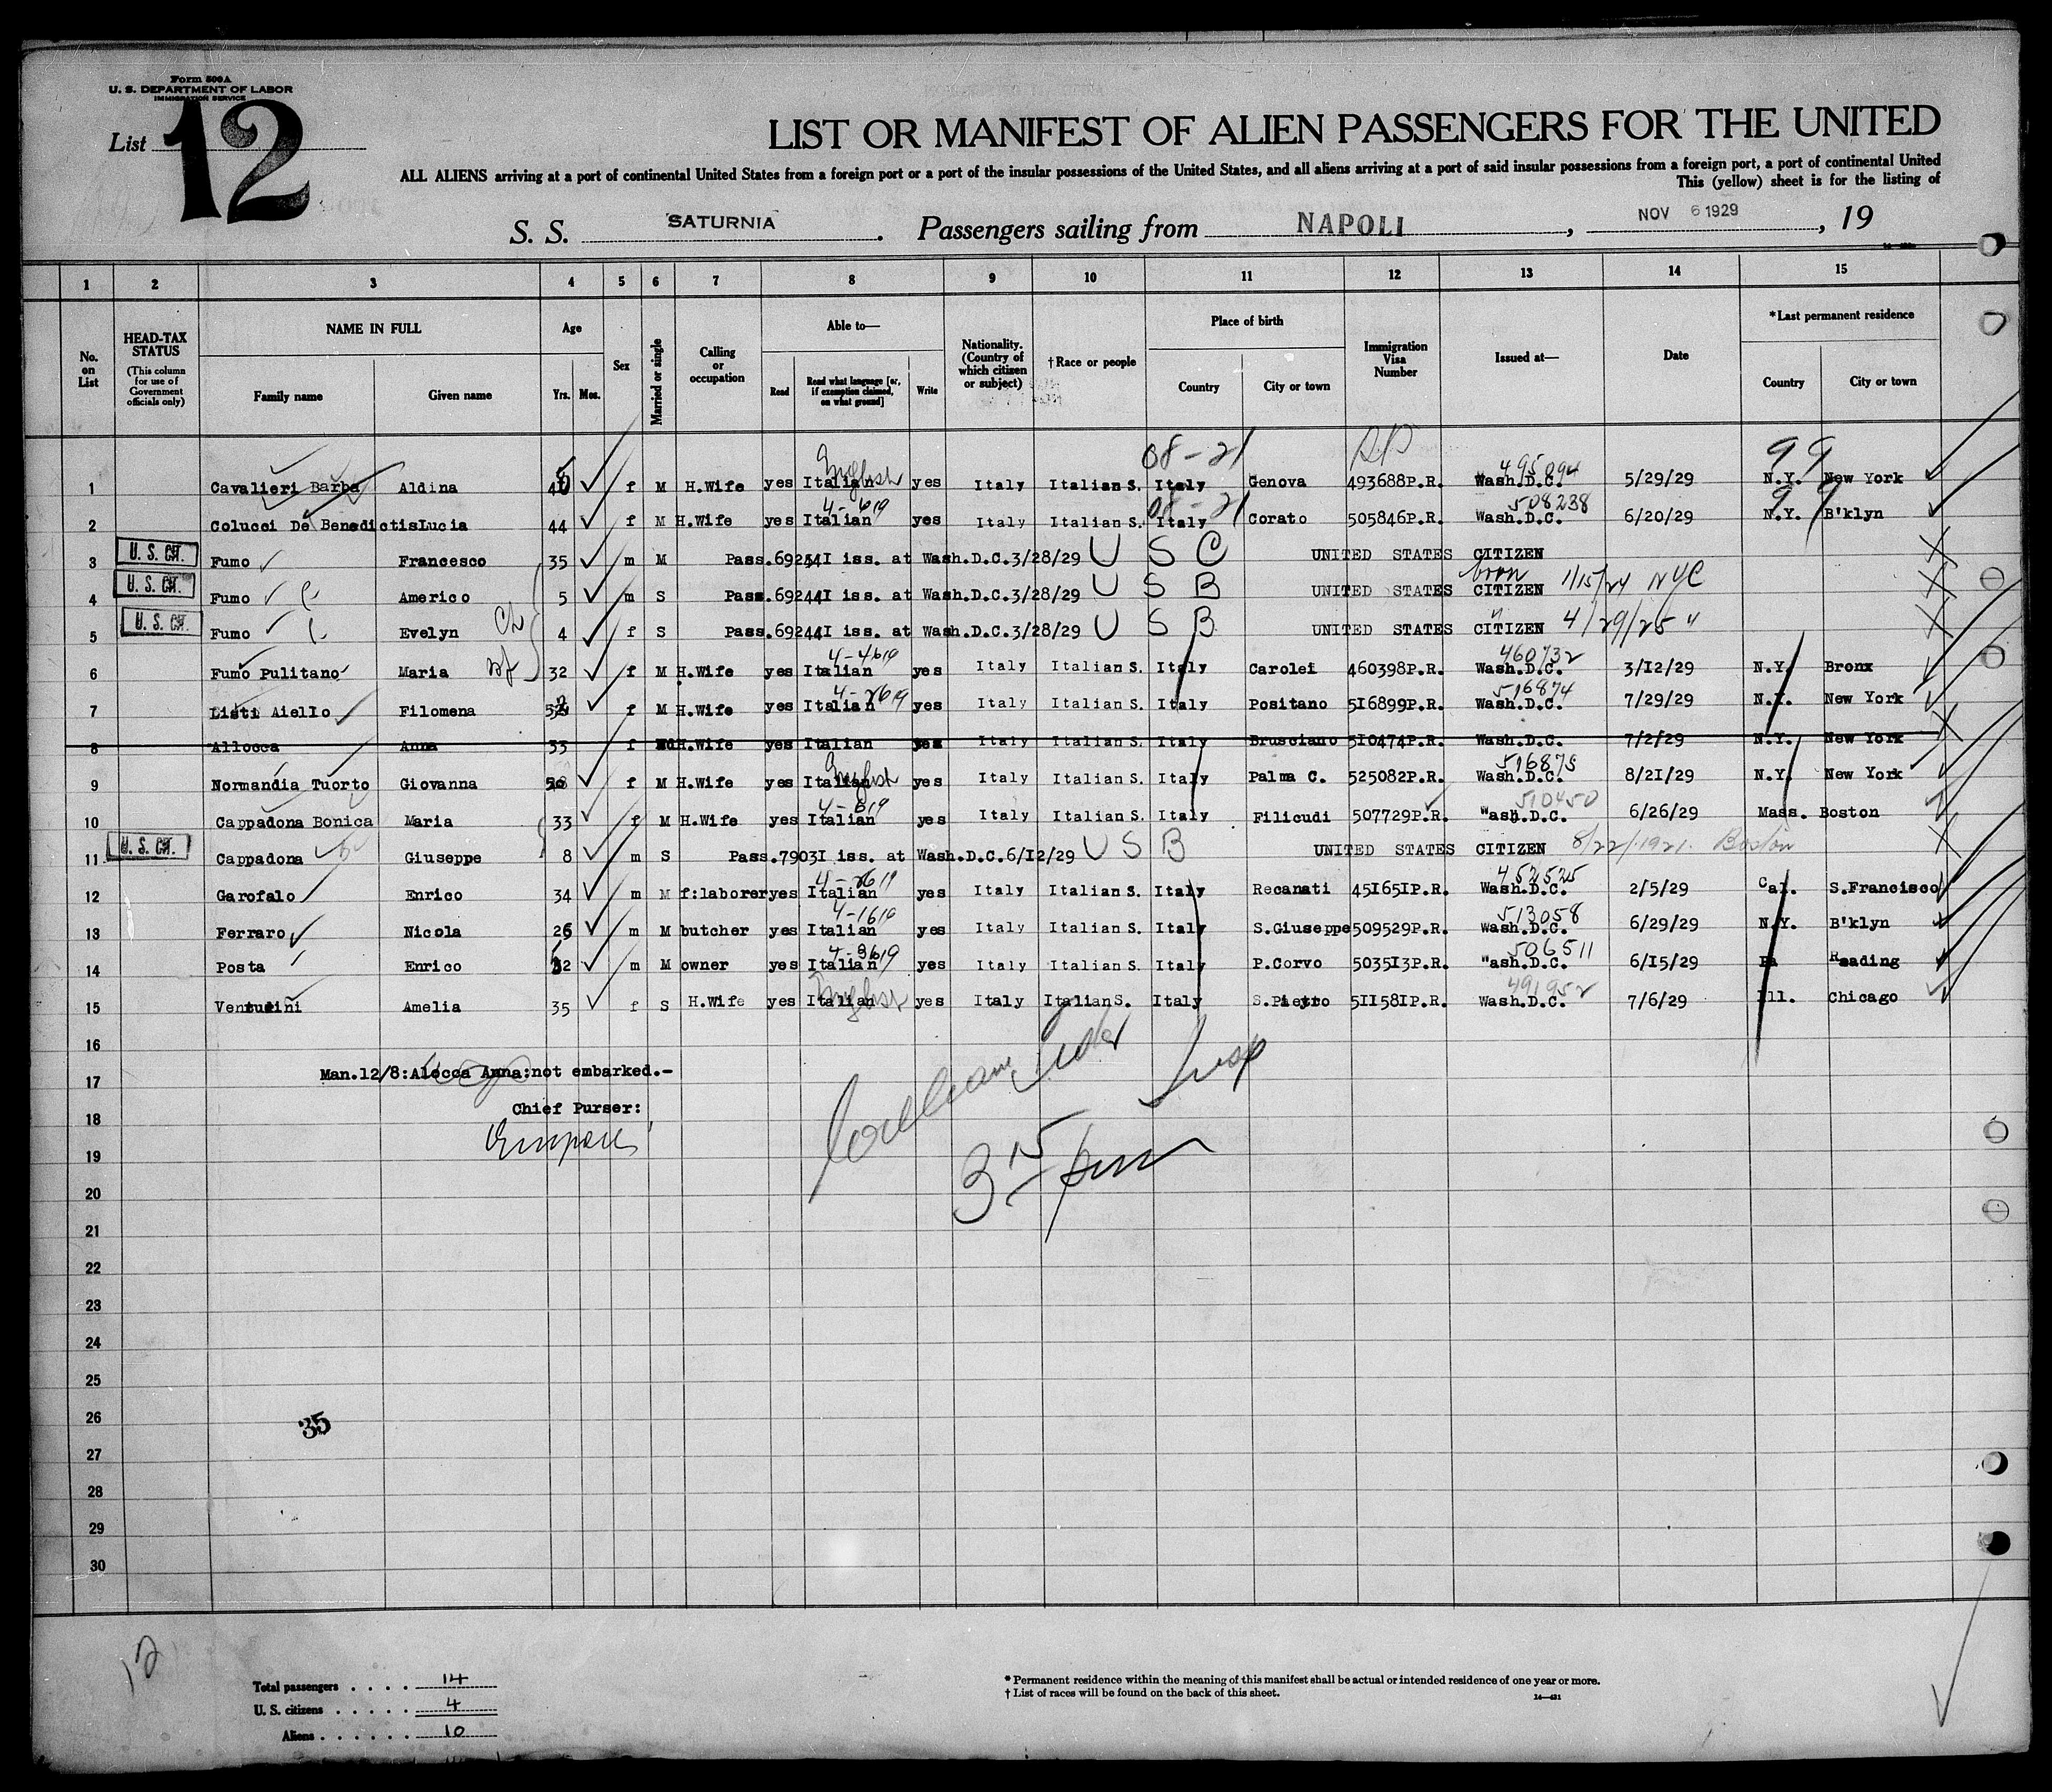 Form 500A
U. S. DEPARTMENT OF LABOR
IMMIGRATION SERVICE
List 12
LIST OR MANIFEST OF ALIEN PASSENGERS FOR THE UNITED
ALL ALIENS arriving at a port of continental United States from a foreign port or a port of the insular possessions of the United States, and all aliens arriving at a port of said insular possessions from a foreign port, a port of continental United
This (yellow) sheet is for the listing of
S. S. SATURNIA. Passengers sailing from NAPOLI, NOV 6 1929, 19
1 2 3 4 5 6 7 8 9 10 11 12 13 14 15
No. on List
HEAD-TAX STATUS (This column for use of Government officials only)
NAME IN FULL
Family name Given name
Age
Yrs. Mos.
Sex
Married or single
Calling or occupation
Able to—
Read Read what language [or, if exemption claimed, on what ground] Write
Nationality. (Country of which citizen or subject)
†Race or people
Place of birth
Country City or town
Immigration Visa Number
Issued at—
Date
*Last permanent residence
Country City or town
08-21 99
English 495094
1 Cavalieri Barba Aldina f M H.Wife yes Italian yes Italy Italian S. Italy Genova 493688P.R. Wash.D.C. 5/29/29 N.Y. New York
4-619 08-21 508238 99
2 Colucci De Benedictis Lucia 44 f M H.Wife yes Italian yes Italy Italian S. Italy Corato 505846P.R. Wash.D.C. 6/20/29 N.Y. B'klyn
3 U. S. Cit. Fumo Francesco 35 m M Pass.69244I iss. at Wash.D.C.3/28/29 U S C UNITED STATES CITIZEN
4 U. S. Cit. Fumo Americo 5 m S Pass.69244I iss. at Wash.D.C.3/28/29 U S B UNITED STATES CITIZEN born 1/15/24 NYC
5 U. S. Cit. Fumo Evelyn 4 f S Pass.69244I iss. at Wash.D.C.3/28/29 U S B UNITED STATES CITIZEN " 4/29/25 "
4-4619 460732
6 Fumo Pulitano Maria wf 32 f M H.Wife yes Italian yes Italy Italian S. Italy Carolei 460398P.R. Wash.D.C. 3/12/29 N.Y. Bronx
4-2619 516874
7 Listi Aiello Filomena f M H.Wife yes Italian yes Italy Italian S. Italy Positano 516899P.R. Wash.D.C. 7/29/29 N.Y. New York
8 Allocca Anna 33 f H.Wife yes Italian yes Italy Italian S. Italy Brusciano 510474P.R. Wash.D.C. 7/2/29 N.Y. New York
English 516875
9 Normandia Tuorto Giovanna f M H.Wife yes Italian yes Italy Italian S. Italy Palma C. 525082P.R. Wash.D.C. 8/21/29 N.Y. New York
4-619 510450
10 Cappadona Bonica Maria 33 f M H.Wife yes Italian yes Italy Italian S. Italy Filicudi 507729P.R. "ash.D.C. 6/26/29 Mass. Boston
11 U. S. Cit. Cappadona Giuseppe 8 m S Pass.7903I iss. at Wash.D.C.6/12/29 U S B UNITED STATES CITIZEN 8/22/1921. Boston
4-2619 452525
12 Garofalo Enrico 34 m M f:laborer yes Italian yes Italy Italian S. Italy Recanati 45165IP.R. Wash.D.C. 2/5/29 Cal. S.Francisco
4-1619 513058
13 Ferraro Nicola 26 m M butcher yes Italian yes Italy Italian S. Italy S.Giuseppe 509529P.R. Wash.D.C. 6/29/29 N.Y. B'klyn
4-3619 506511
14 Posta Enrico m M owner yes Italian yes Italy Italian S. Italy P.Corvo 503513P.R. "ash.D.C. 6/15/29 Pa Reading
English 491952
15 Venturini Amelia 35 f S H.Wife yes Italian yes Italy Italian S. Italy S.Pietro 51158IP.R. Wash.D.C. 7/6/29 Ill. Chicago
16
17 Man.12/8:Alocca Anna:not embarked.-
18 Chief Purser:
19 3 15 pm
20
21
22
23
24
25
26 35
27
28
29
30
12
Total passengers . . . . 14
U. S. citizens . . . . . 4
Aliens . . . . . . 10
* Permanent residence within the meaning of this manifest shall be actual or intended residence of one year or more.
† List of races will be found on the back of this sheet.
14—431